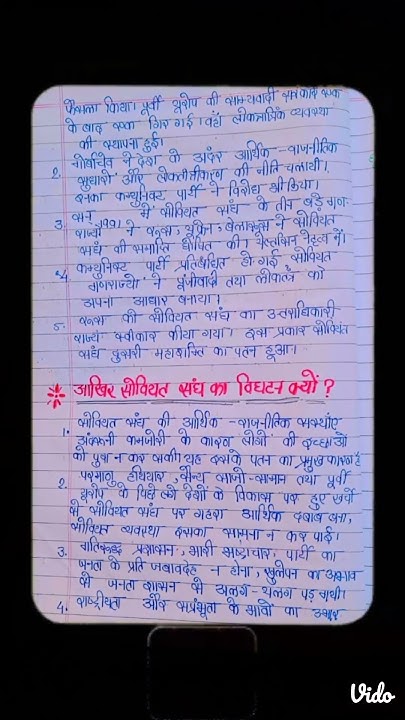 फैसला किया। पूर्वी यूरोप की साम्यवादी सरकारे एक
के बाद एक गिर गई। वहाँ लोकतांत्रिक व्यवस्था
की स्थापना हुई।
2. गोर्बाचेव ने देश के अंदर आर्थिक - राजनीतिक
सुधारों और लोकतंत्रीकरण की नीति चलायी।
इनका कम्युनिस्ट पार्टी ने विरोध भी किया।
3. सन् 1991 में सोवियत संघ के तीन बड़े गण-
राज्यों ने रूस, यूक्रेन, बेलारूस ने सोवियत
संघ की समाप्ति घोषित की। येल्तसिन नेतृत्व में।
4. कम्युनिस्ट पार्टी प्रतिबंधित हो गई सोवियत
गणराज्यों ने पूंजीवाद तथा लोकतंत्र को
अपना आधार बनाया।
5. रूस को सोवियत संघ का उत्तराधिकारी
राज्य स्वीकार किया गया। इस प्रकार सोवियत
संघ दूसरी महाशक्ति का पतन हुआ।
आखिर सोवियत संघ का विघटन क्यों ?
1. सोवियत संघ की आर्थिक - राजनीतिक संस्थाएँ
अंदरूनी कमजोरी के कारण लोगों की इच्छाओं
को पूरा न कर सकी यह इसके पतन का प्रमुख कारण है
2. परमाणु हथियार, सैन्य साजो-सामान तथा पूर्वी
यूरोप के पिछलग्गू देशों के विकास पर हुए खर्चों
से सोवियत संघ पर गहरा आर्थिक दबाव बना,
सोवियत व्यवस्था इसका सामना न कर पाई।
3. गतिरुद्ध प्रशासन, भारी भ्रष्टाचार, पार्टी का
जनता के प्रति जवाबदेह न होना, खुलेपन का अभाव
से जनता शासन से अलग-थलग पड़ गयी।
4. राष्ट्रीयता और संप्रभुता के भावों का उभार
Vido